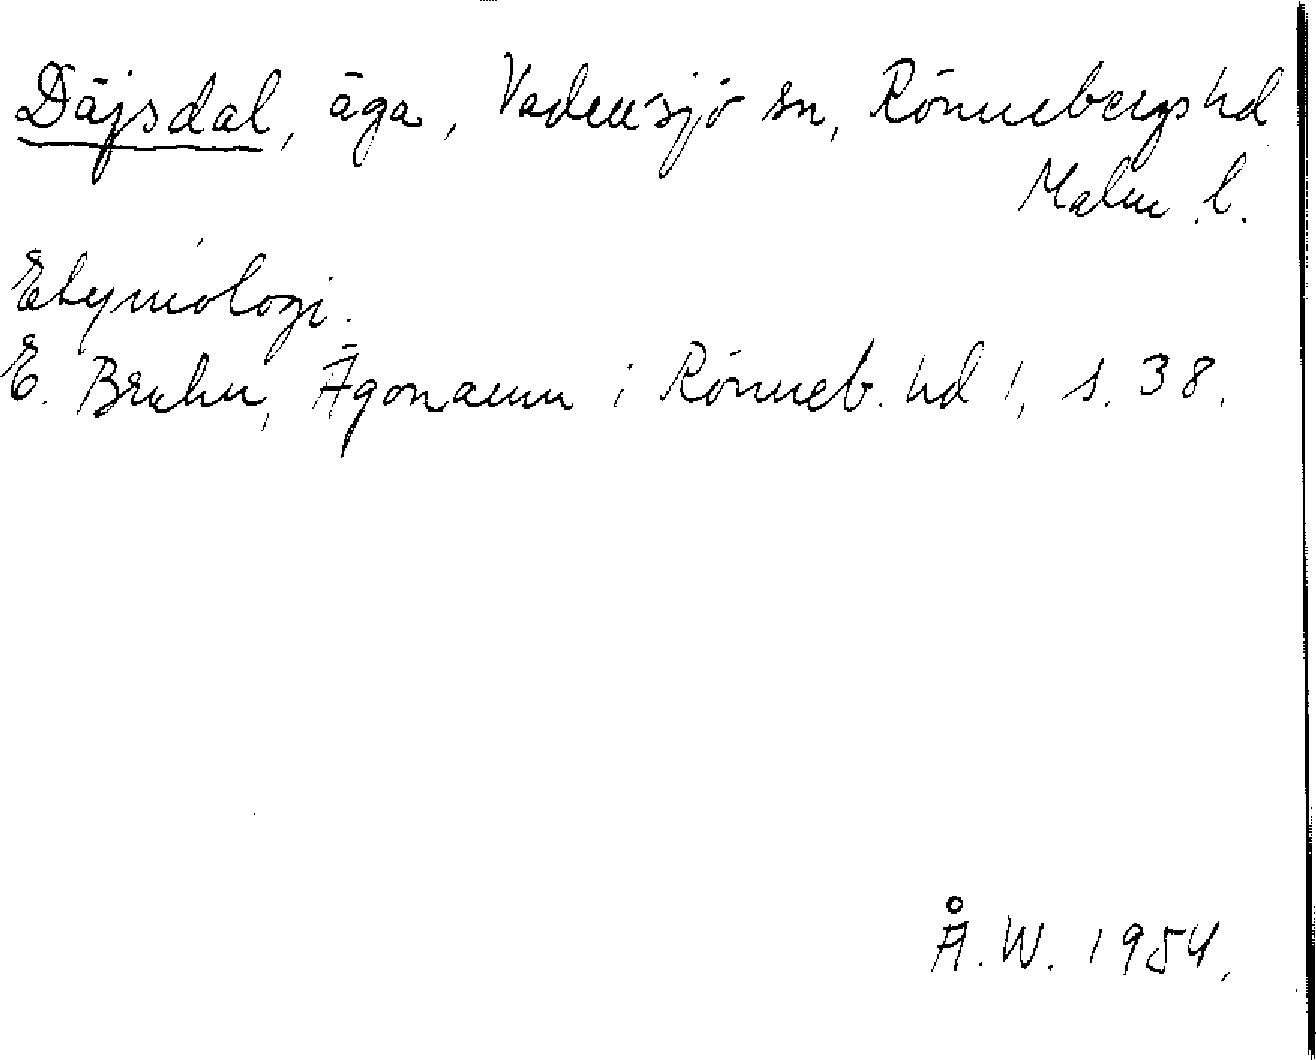 Däjsdal, äga, Vadensjö sn, Rönnebergs hd
Malm. l.
Etymologi.
E. Bruhn, Ägonamn i Rönneb. hd 1, s. 38.
Å. W. 1954.